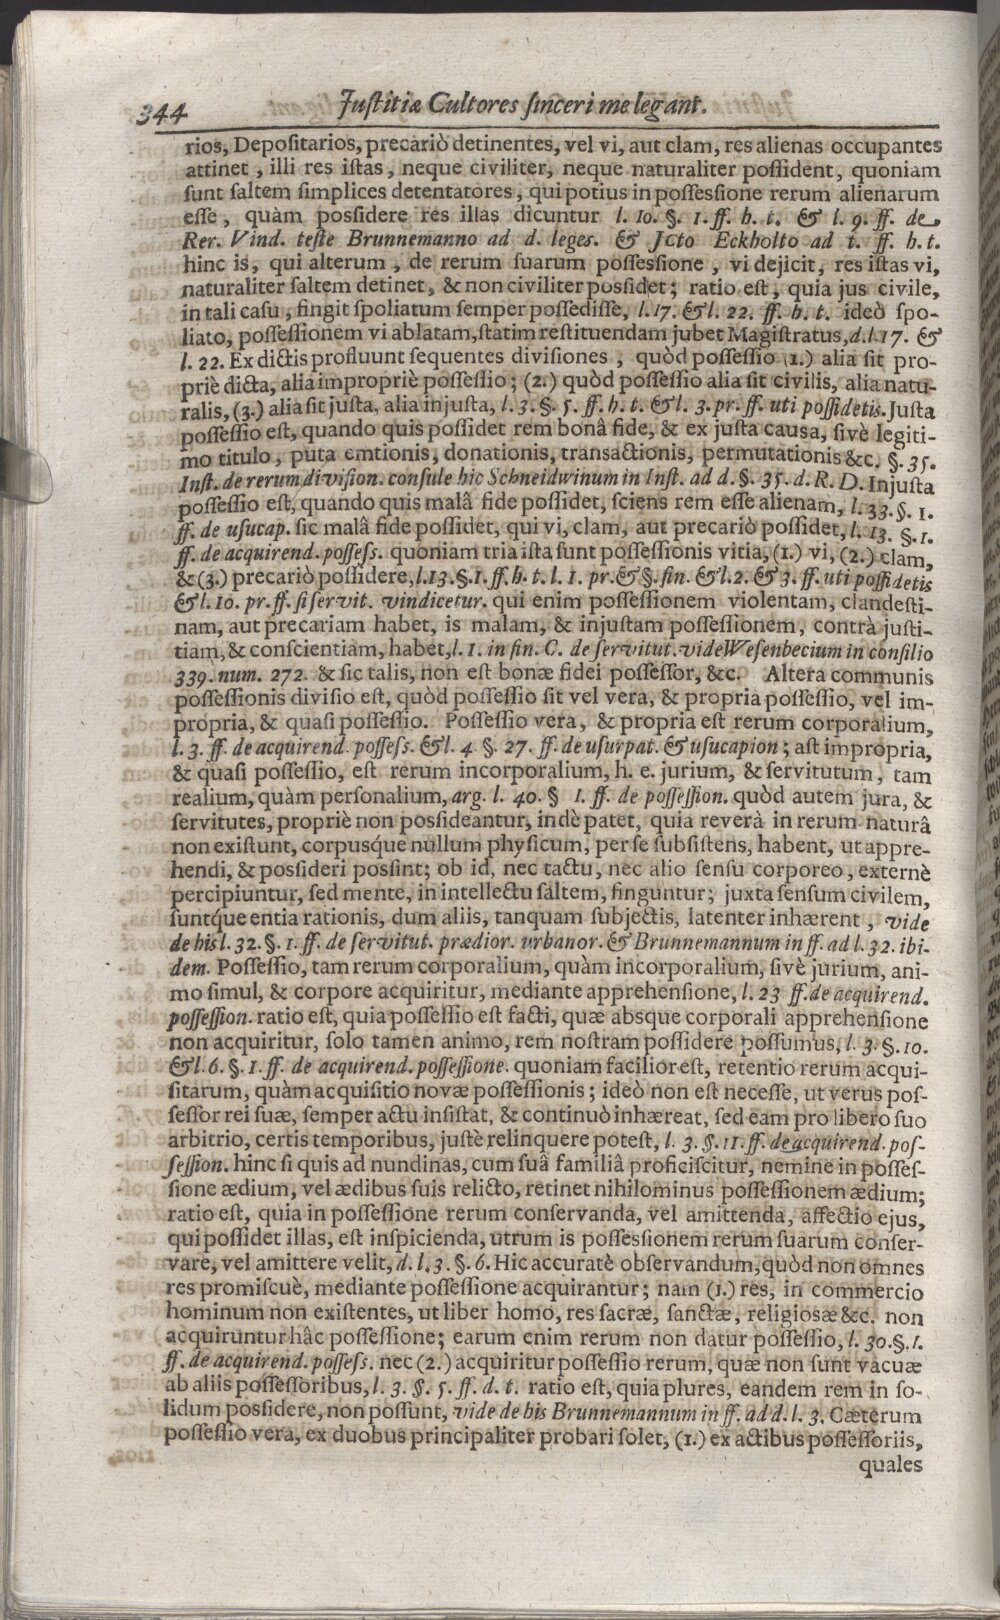 344 Justitiæ Cultores sinceri me legant.
rios, Depositarios, precariò detinentes, vel vi, aut clam, res alienas occupantes
attinet, illi res istas, neque civiliter, neque naturaliter possident, quoniam
sunt saltem simplices detentatores, qui potius in possessione rerum alienarum
esse, quàm possidere res illas dicuntur l. 10. §. 1. ff. h. t. & l. 9. ff. de
Rer. Vind. teste Brunnemanno ad d. leges. & JCto Eckholto ad t. ff. h. t.
hinc is, qui alterum, de rerum suarum possessione, vi dejicit, res istas vi,
naturaliter saltem detinet, & non civiliter possidet; ratio est, quia jus civile,
in tali casu, fingit spoliatum semper possedisse, l. 17. & l. 22. ff. h. t. ideò spo-
liato, possessionem vi ablatam, statim restituendam jubet Magistratus, d. l. 17. &
l. 22. Ex dictis profluunt sequentes divisiones, quòd possessio (1.) alia sit pro-
priè dicta, alia impropriè possessio; (2.) quòd possessio alia sit civilis, alia natu-
ralis, (3.) alia sit justa, alia injusta, l. 3. §. 5. ff. h. t. & l. 3. pr. ff. uti possidetis. Justa
possessio est, quando quis possidet rem bonâ fide, & ex justa causa, sivè legiti-
mo titulo, puta emtionis, donationis, transactionis, permutationis &c. §. 35.
Inst. de rerum division. consule hic Schneidwinum in Inst. ad d. §. 35. d. R. D. Injusta
possessio est, quando quis malâ fide possidet, sciens rem esse alienam, l. 33. §. 1.
ff. de usucap. sic malâ fide possidet, qui vi, clam, aut precariò possidet, l. 13. §. 1.
ff. de acquirend. possess. quoniam tria ista sunt possessionis vitia, (1.) vi, (2.) clam,
& (3.) precariò possidere, l. 13. §. 1. ff. h. t. l. 1. pr. & §. fin. & l. 2. & 3. ff. uti possidetis
& l. 10. pr. ff. si servit. vindicetur. qui enim possessionem violentam, clandesti-
nam, aut precariam habet, is malam, & injustam possessionem, contrà justi-
tiam, & conscientiam, habet, l. 1. in fin. C. de servitut. vide Wesenbecium in consilio
339. num. 272. & sic talis, non est bonæ fidei possessor, &c. Altera communis
possessionis divisio est, quòd possessio sit vel vera, & propria possessio, vel im-
propria, & quasi possessio. Possessio vera, & propria est rerum corporalium,
l. 3. ff. de acquirend. possess. & l. 4 §. 27. ff. de usurpat. & usucapion; ast impropria,
& quasi possessio, est rerum incorporalium, h. e. jurium, & servitutum, tam
realium, quàm personalium, arg. l. 40. § 1. ff. de possession. quòd autem jura, &
servitutes, propriè non possideantur, indè patet, quia reverà in rerum naturâ
non existunt, corpusq́ue nullum physicum, per se subsistens, habent, ut appre-
hendi, & possideri possint; ob id, nec tactu, nec alio sensu corporeo, externè
percipiuntur, sed mente, in intellectu saltem, finguntur; juxta sensum civilem,
suntq́ue entia rationis, dum aliis, tanquam subjectis, latenter inhærent, vide
de his l. 32. §. 1. ff. de servitut. prædior. urbanor. & Brunnemannum in ff. ad l. 32. ibi-
dem. Possessio, tam rerum corporalium, quàm incorporalium, sivè jurium, ani-
mo simul, & corpore acquiritur, mediante apprehensione, l. 23 ff. de acquirend.
possession. ratio est, quia possessio est facti, quæ absque corporali apprehensione
non acquiritur, solo tamen animo, rem nostram possidere possumus, l. 3. §. 10.
& l. 6. §. 1. ff. de acquirend. possessione. quoniam facilior est, retentio rerum acqui-
sitarum, quàm acquisitio novæ possessionis; ideò non est necesse, ut verus pos-
sessor rei suæ, semper actu insistat, & continuò inhæreat, sed eam pro libero suo
arbitrio, certis temporibus, justè relinquere potest, l. 3. §. 11. ff. de acquirend. pos-
session. hinc si quis ad nundinas, cum suâ familiâ proficiscitur, nemine in posses-
sione ædium, vel ædibus suis relicto, retinet nihilominus possessionem ædium;
ratio est, quia in possessione rerum conservanda, vel amittenda, affectio ejus,
qui possidet illas, est inspicienda, utrum is possessionem rerum suarum conser-
vare, vel amittere velit, d. l. 3. §. 6. Hic accuratè observandum, quòd non omnes
res promiscuè, mediante possessione acquirantur; nam (1.) res, in commercio
hominum non existentes, ut liber homo, res sacræ, sanctæ, religiosæ &c. non
acquiruntur hâc possessione; earum enim rerum non datur possessio, l. 30. §. 1.
ff. de acquirend. possess. nec (2.) acquiritur possessio rerum, quæ non sunt vacuæ
ab aliis possessoribus, l. 3. §. 5. ff. d. t. ratio est, quia plures, eandem rem in so-
lidum possidere, non possunt, vide de his Brunnemannum in ff. ad d. l. 3. Cæterum
possessio vera, ex duobus principaliter probari solet, (1.) ex actibus possessoriis,
quales